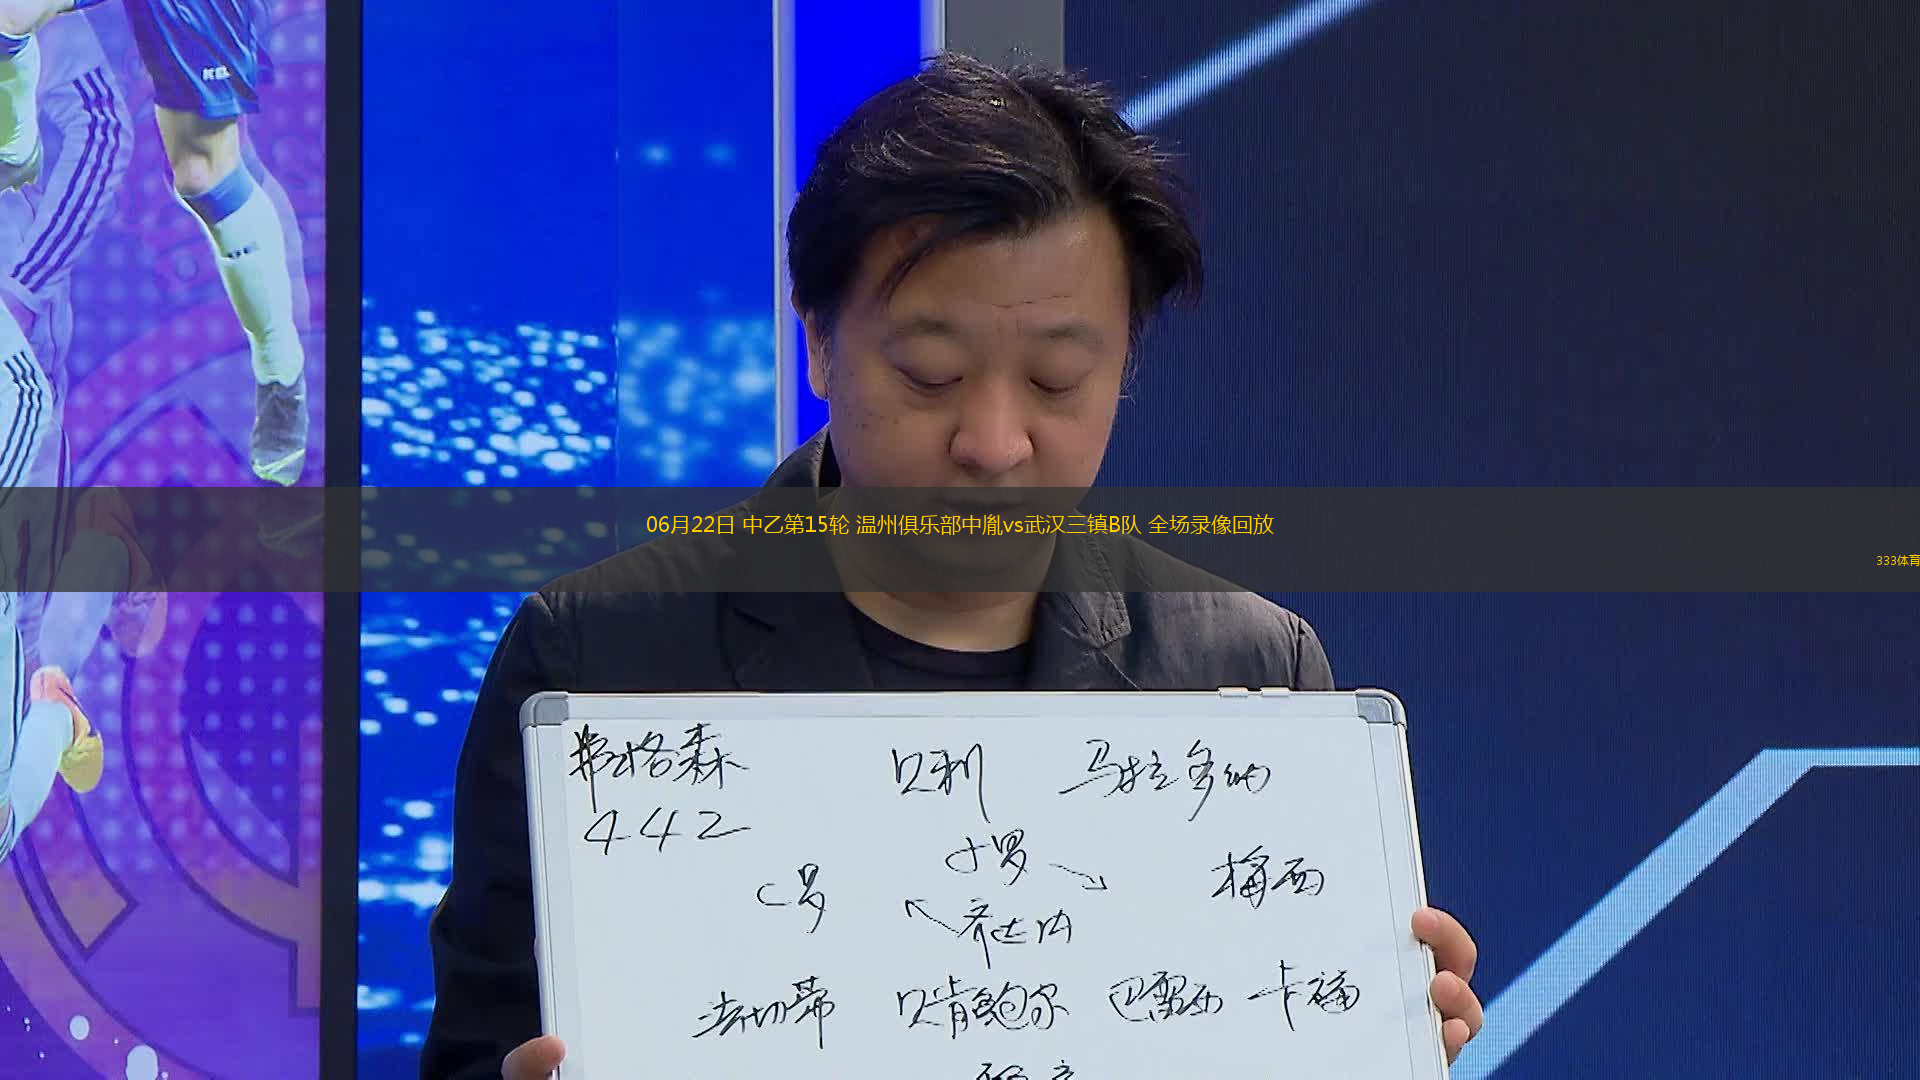 KEL
06月22日 中乙第15轮 温州俱乐部中胤vs武汉三镇B队 全场录像回放
333体育
弗格森 贝利 马拉多纳
442
小罗
C罗 梅西
齐达内
法切蒂 贝肯鲍尔 巴雷西 卡福